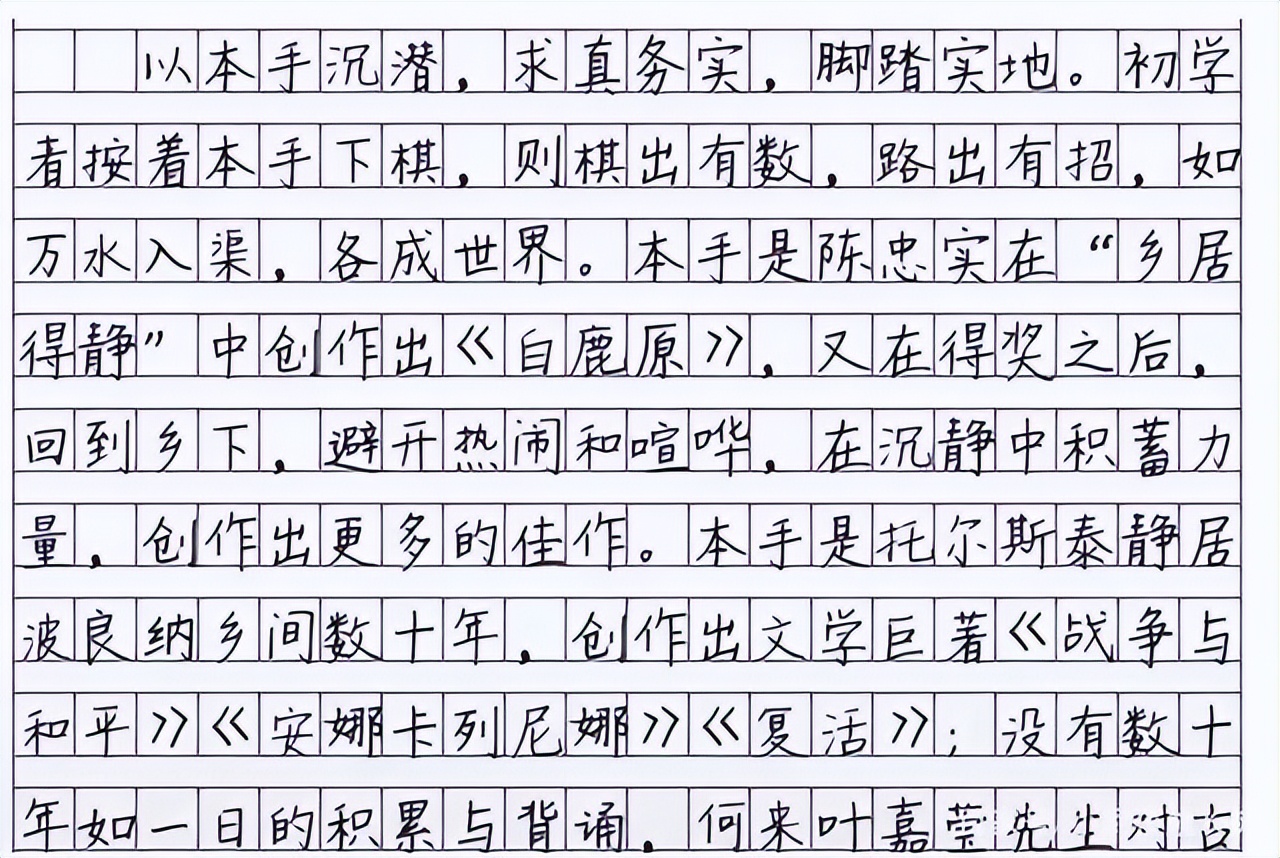 以本手沉潜，求真务实，脚踏实地。初学
者按着本手下棋，则棋出有数，路出有招，如
万水入渠，各成世界。本手是陈忠实在“乡居
得静”中创作出《白鹿原》，又在得奖之后，
回到乡下，避开热闹和喧哗，在沉静中积蓄力
量，创作出更多的佳作。本手是托尔斯泰静居
波良纳乡间数十年，创作出文学巨著《战争与
和平》《安娜卡列尼娜》《复活》；没有数十
年如一日的积累与背诵，何来叶嘉莹先生对古